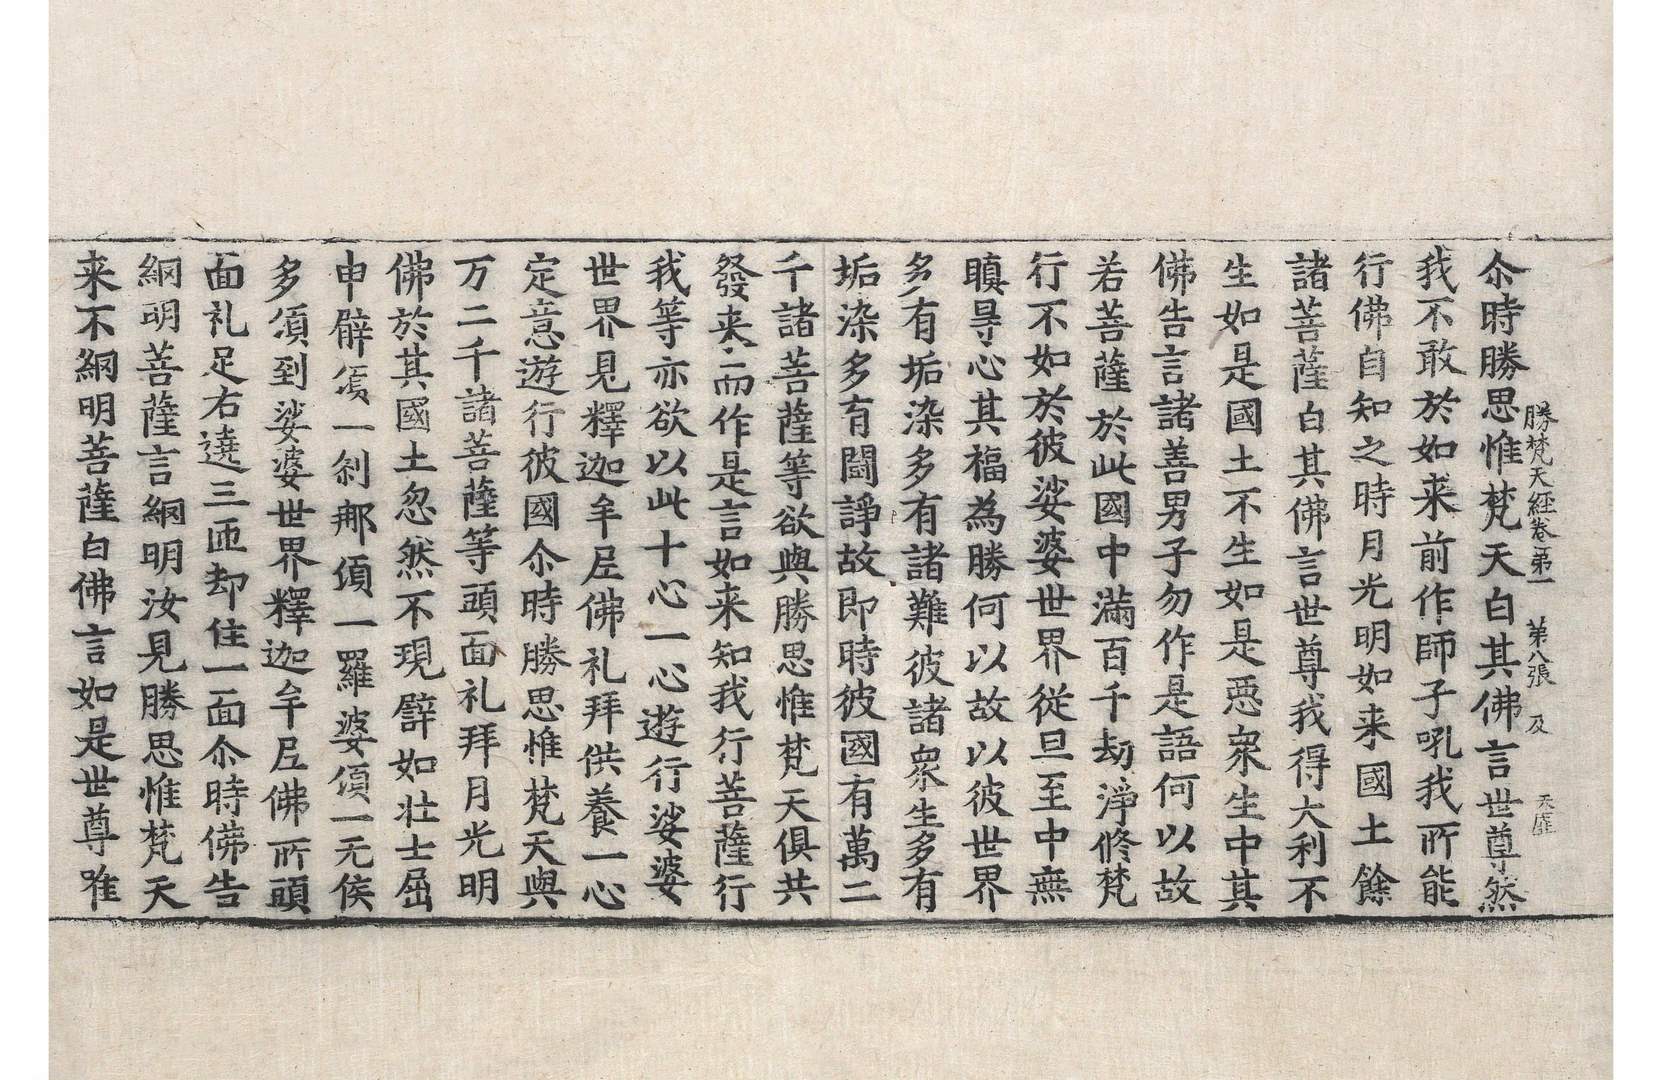 勝梵天經卷第一　第八張　及
尒時勝思惟梵天白其佛言世尊然
我不敢於如来前作師子吼我所能
行佛自知之時月光明如来國土餘
諸菩薩白其佛言世尊我得大利不
生如是國土不生如是惡衆生中其
佛告言諸善男子勿作是語何以故
若菩薩於此國中滿百千劫淨修梵
行不如於彼娑婆世界從旦至中無
瞋㝵心其福為勝何以故以彼世界
多有垢染多有諸難彼諸衆生多有
垢染多有鬪諍故即時彼國有萬二
千諸菩薩等欲與勝思惟梵天俱共
發来而作是言如来知我行菩薩行
我等亦欲以此十心一心遊行娑婆
世界見釋迦牟尼佛礼拜供養一心
定意遊行彼國尒時勝思惟梵天與
万二千諸菩薩等頭面礼拜月光明
佛於其國土忽然不現譬如壮士屈
申臂湏一刹那湏一羅婆湏一无侯
多湏到娑婆世界釋迦牟尼佛所頭
面礼足右遶三匝却住一面尒時佛告
網明菩薩言網明汝見勝思惟梵天
来不網明菩薩白佛言如是世尊唯